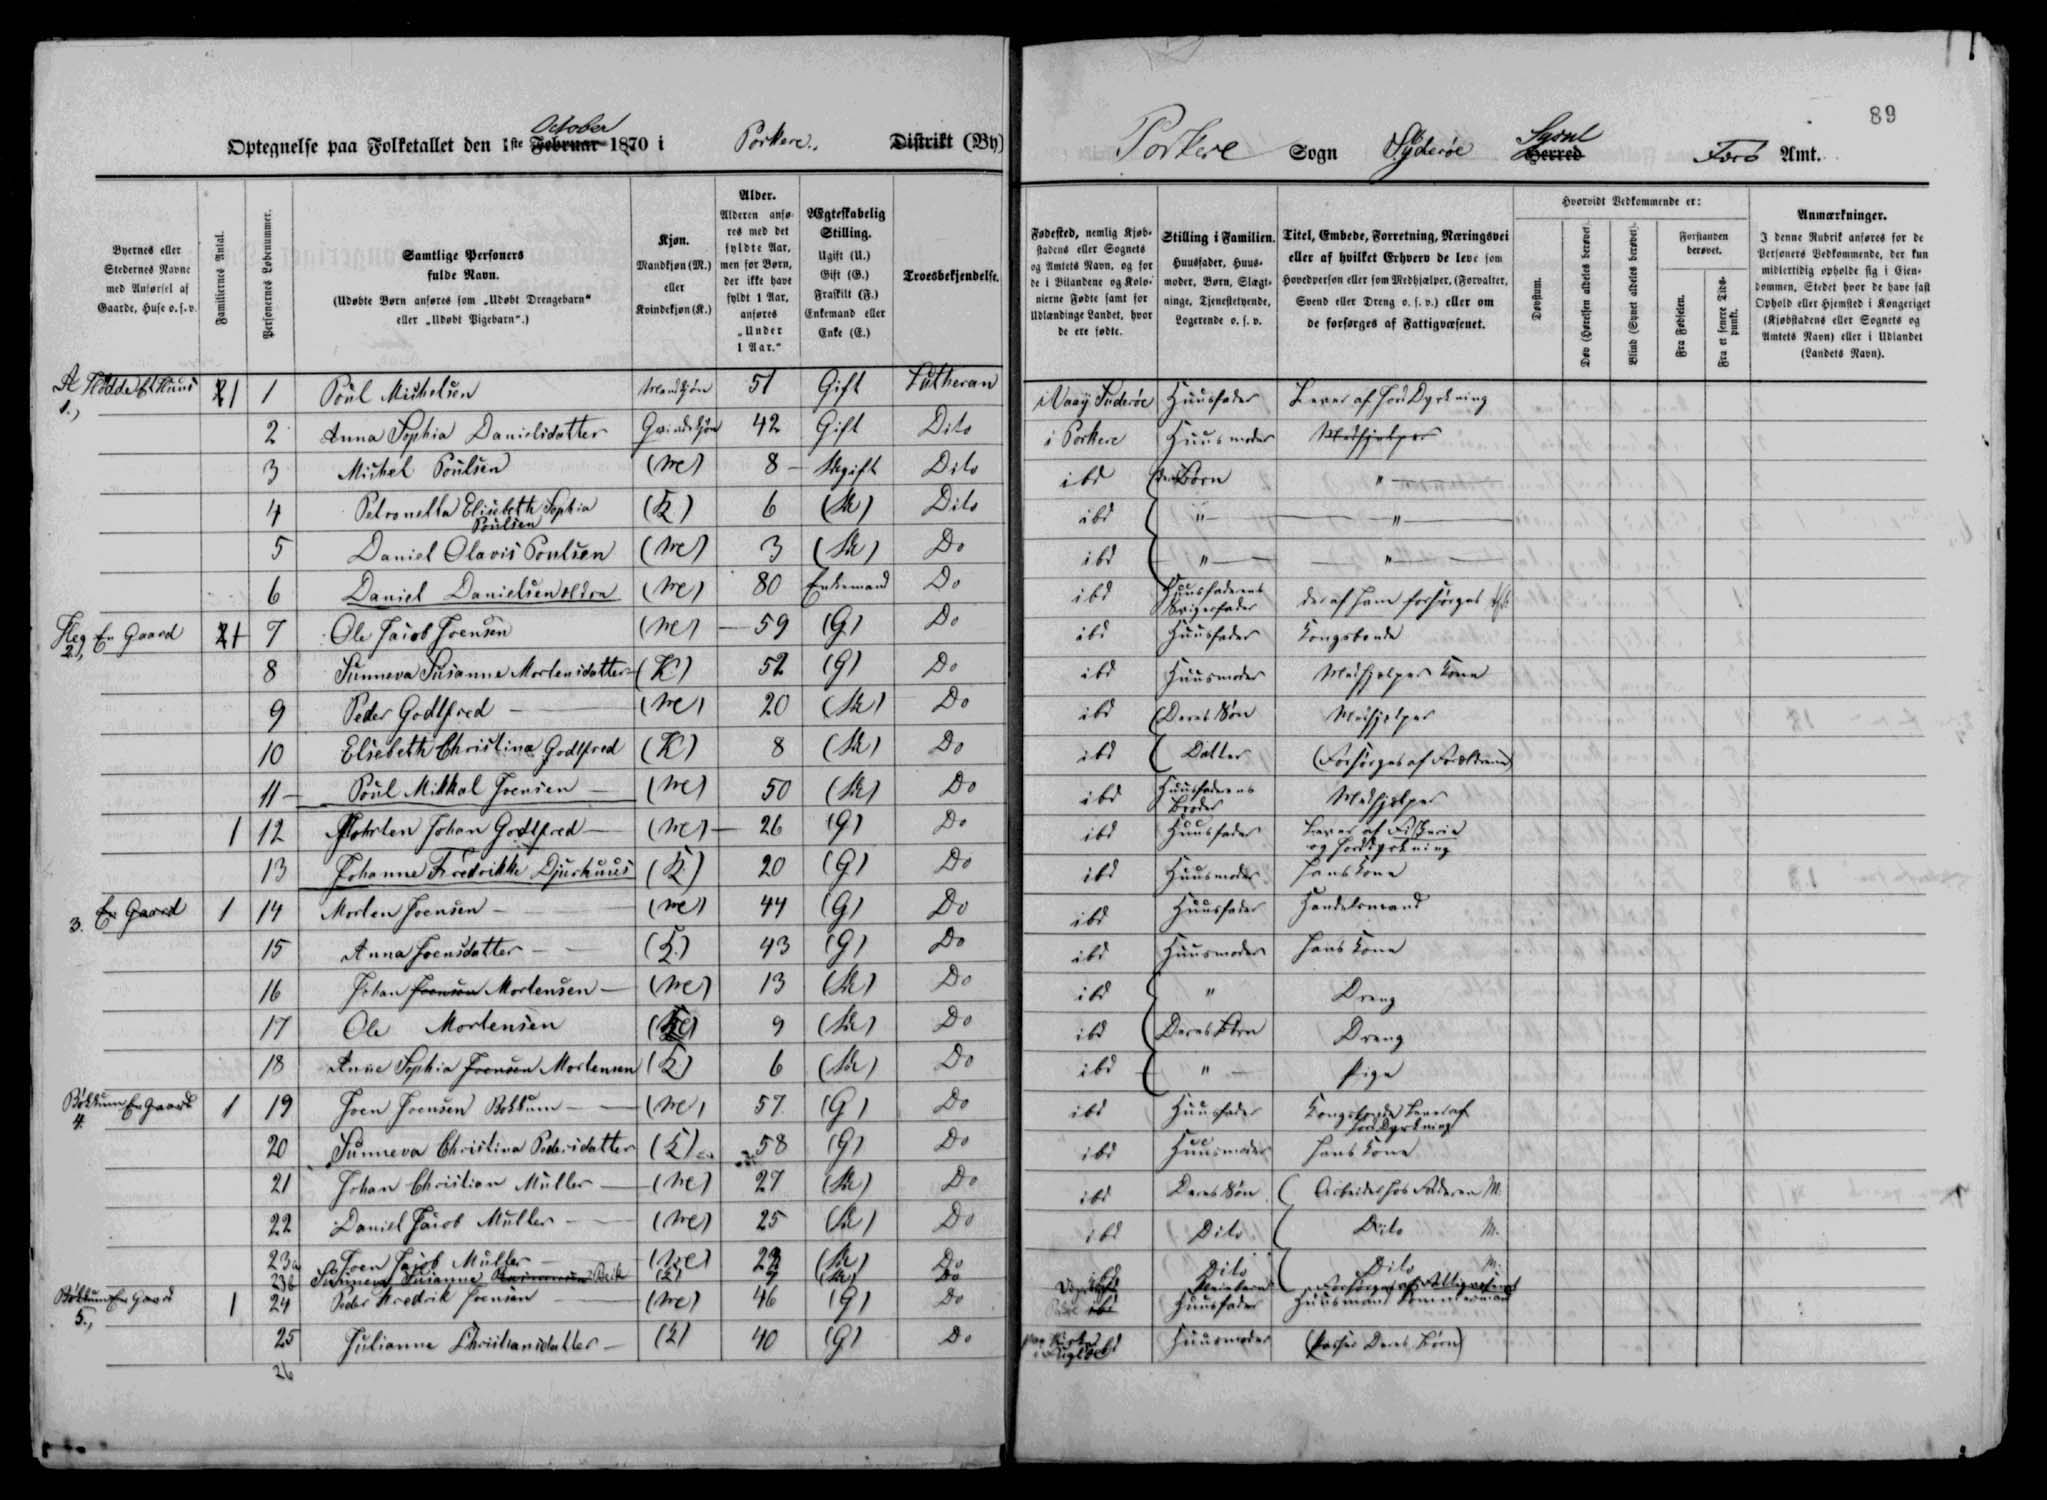 89
October
Optegnelse paa Folketallet den 1ste Februar 1870 i Porkere. Distrikt (By)
Porkere Sogn Syderøe Syssel Herred Færø Amt.
Byernes eller Stedernes Navne med Anførsel af Gaarde, Huse o. s. v.
Familiernes Antal.
Personernes Løbenummer.
Samtlige Personers fulde Navn.
(Udøbte Børn anføres som „Udøbt Drengebarn“ eller „Udøbt Pigebarn“.)
Kjøn.
Mandkjøn (M.) eller Kvindekjøn (K.)
Alder.
Alderen anføres med det fyldte Aar, men for Børn, der ikke have fyldt 1 Aar, anføres „Under 1 Aar.“
Ægteskabelig Stilling.
Ugift (U.)
Gift (G.)
Fraskilt (F.)
Enkemand eller Enke (E.)
Troesbekjendelse.
Fødested, nemlig Kjøbstadens eller Sognets og Amtets Navn, og for de i Bilandene og Kolonierne Fødte samt for Udlændinge Landet, hvor de ere fødte.
Stilling i Familien.
Huusfader, Huusmoder, Børn, Slægtninge, Tjenestetyende, Logerende o. s. v.
Titel, Embede, Forretning, Næringsvei eller af hvilket Erhverv de leve som Hovedperson eller som Medhjælper, (Forvalter, Svend eller Dreng o. s. v.) eller om de forsørges af Fattigvæsenet.
Hvorvidt Vedkommende er:
Døvstum.
Døv (Hørelsen aldeles berøvet).
Blind (Synet aldeles berøvet).
Forstanden berøvet.
Fra Fødselen.
Fra et senere Tidspunkt.
Anmærkninger.
I denne Rubrik anføres for de Personers Vedkommende, der kun midlertidig opholde sig i Eiendommen, Stedet hvor de have fast Ophold eller Hjemsted i Kongeriget (Kjøbstadens eller Sognets og Amtets Navn) eller i Udlandet (Landets Navn).
1 1 Poul Michelsen Mandkjøn 51 Gift Lutheran i Vaaÿ Suderøe Huusfader Lever af Jord Dyrkning
2 Anna Sophia Danielsdatter Qvindekjøn 42 Gift Dito i Porkere Huusmoder Medhjelper
3 Michel Poulsen (M) 8 Ugift Dito ibd Børn "
4 Petronella Elisebeth Sophia Poulsen (K) 6 (U) Dito ibd " "
5 Daniel Olavis Poulsen (M) 3 (U) Do ibd " "
6 Daniel Danielsen (M) 80 Enkemand Do ibd Huusfaderens Svigerfader der af ham forsørges
2, En Gaard 7 Ole Jacob Joensen (M) 59 (G) Do ibd Huusfader Kongsbonde
8 Sunneva Susanne Mortensdatter (K) 52 (G) Do ibd Huusmoder Medhjelper Kone
9 Peder Godtfred (M) 20 (U) Do ibd (Deres Søn Medhjelper
10 Elsebeth Christina Godtfred (K) 8 (U) Do ibd Datter (Forsørges af Forældrene)
11 Poul Mikkal Joensen (M) 50 (U) Do ibd Huusfaderens Broder Medhjelper
1 12 Mohrten Johan Godtfred (M) 26 (G) Do ibd Huusfader Lever af Fiskerie og Jorddyrkning
13 Johanne Fredrikke Djurhuus (K) 20 (G) Do ibd Huusmoder hans Kone
3. En Gaard 1 14 Morten Joensen (M) 44 (G) Do ibd Huusfader Handelsmand
15 Anna Joensdatter (K.) 43 (G) Do ibd Huusmoder hans Kone
16 Johan Joensen Mortensen (M) 13 (U) Do ibd " Dreng
17 Ole Mortensen (M) 9 (U) Do ibd Deres Børn Dreng
18 Anne Sophia Joensen Mortensen (K) 6 (U) Do ibd " Pige
4. Bøkkum En Gaard 1 19 Joen Joensen Bokkum (M) 57 (G) Do ibd Huusfader Kongsbonde Lever af Jord Dyrkning
20 Sunneva Christina Pedersdatter (K) 58 (G) Do ibd Huusmoder hans Kone
21 Johan Christian Müller (M) 27 (U) Do ibd Deres Søn (Arbeider hos Faderen M.
22 Daniel Jacob Müller (M) 25 (U) Do ibd Dito Dito M.
23a Joen Jacob Müller (M) 22 (U) Do ibd Dito Dito M.
23b Sunneva Susanne (K) 7 (U) Do Pleiebarn Forsørges af Fattigvæsenet
5., Bøkkum En Gaard 1 24 Peder Fredrik Joensen (M) 46 (G) Do ibd Huusfader Huusmand Tømmermand
25 Julianne Christiansdatter (K) 40 (G) Do ibd Huusmoder (Passer Deres Børn)
26